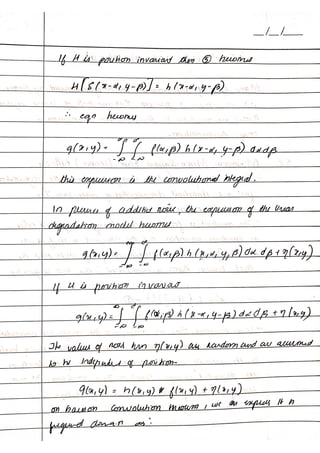 __/__/__
If H is position invariant then ⑤ becomes
H[δ(x-α, y-β)] = h(x-α, y-β)
∴ eqn becomes
g(x,y) = ∫_{-∞}^{∞} ∫_{-∞}^{∞} f(α,β) h(x-α, y-β) dα dβ
this expression is the convolutional integral.
In presence of additive noise, the expression of the linear
degradation model becomes
g(x,y) = ∫_{-∞}^{∞} ∫_{-∞}^{∞} f(α,β) h(x,α,y,β) dα dβ + η(x,y)
If H is position invariant
g(x,y) = ∫_{-∞}^{∞} ∫_{-∞}^{∞} f(α,β) h(x-α, y-β) dα dβ + η(x,y)
The values of noise term η(x,y) are random and are assumed
to be independent of position.
g(x,y) = h(x,y) * f(x,y) + η(x,y)
on convolution theorem, we can express it in
domain as: